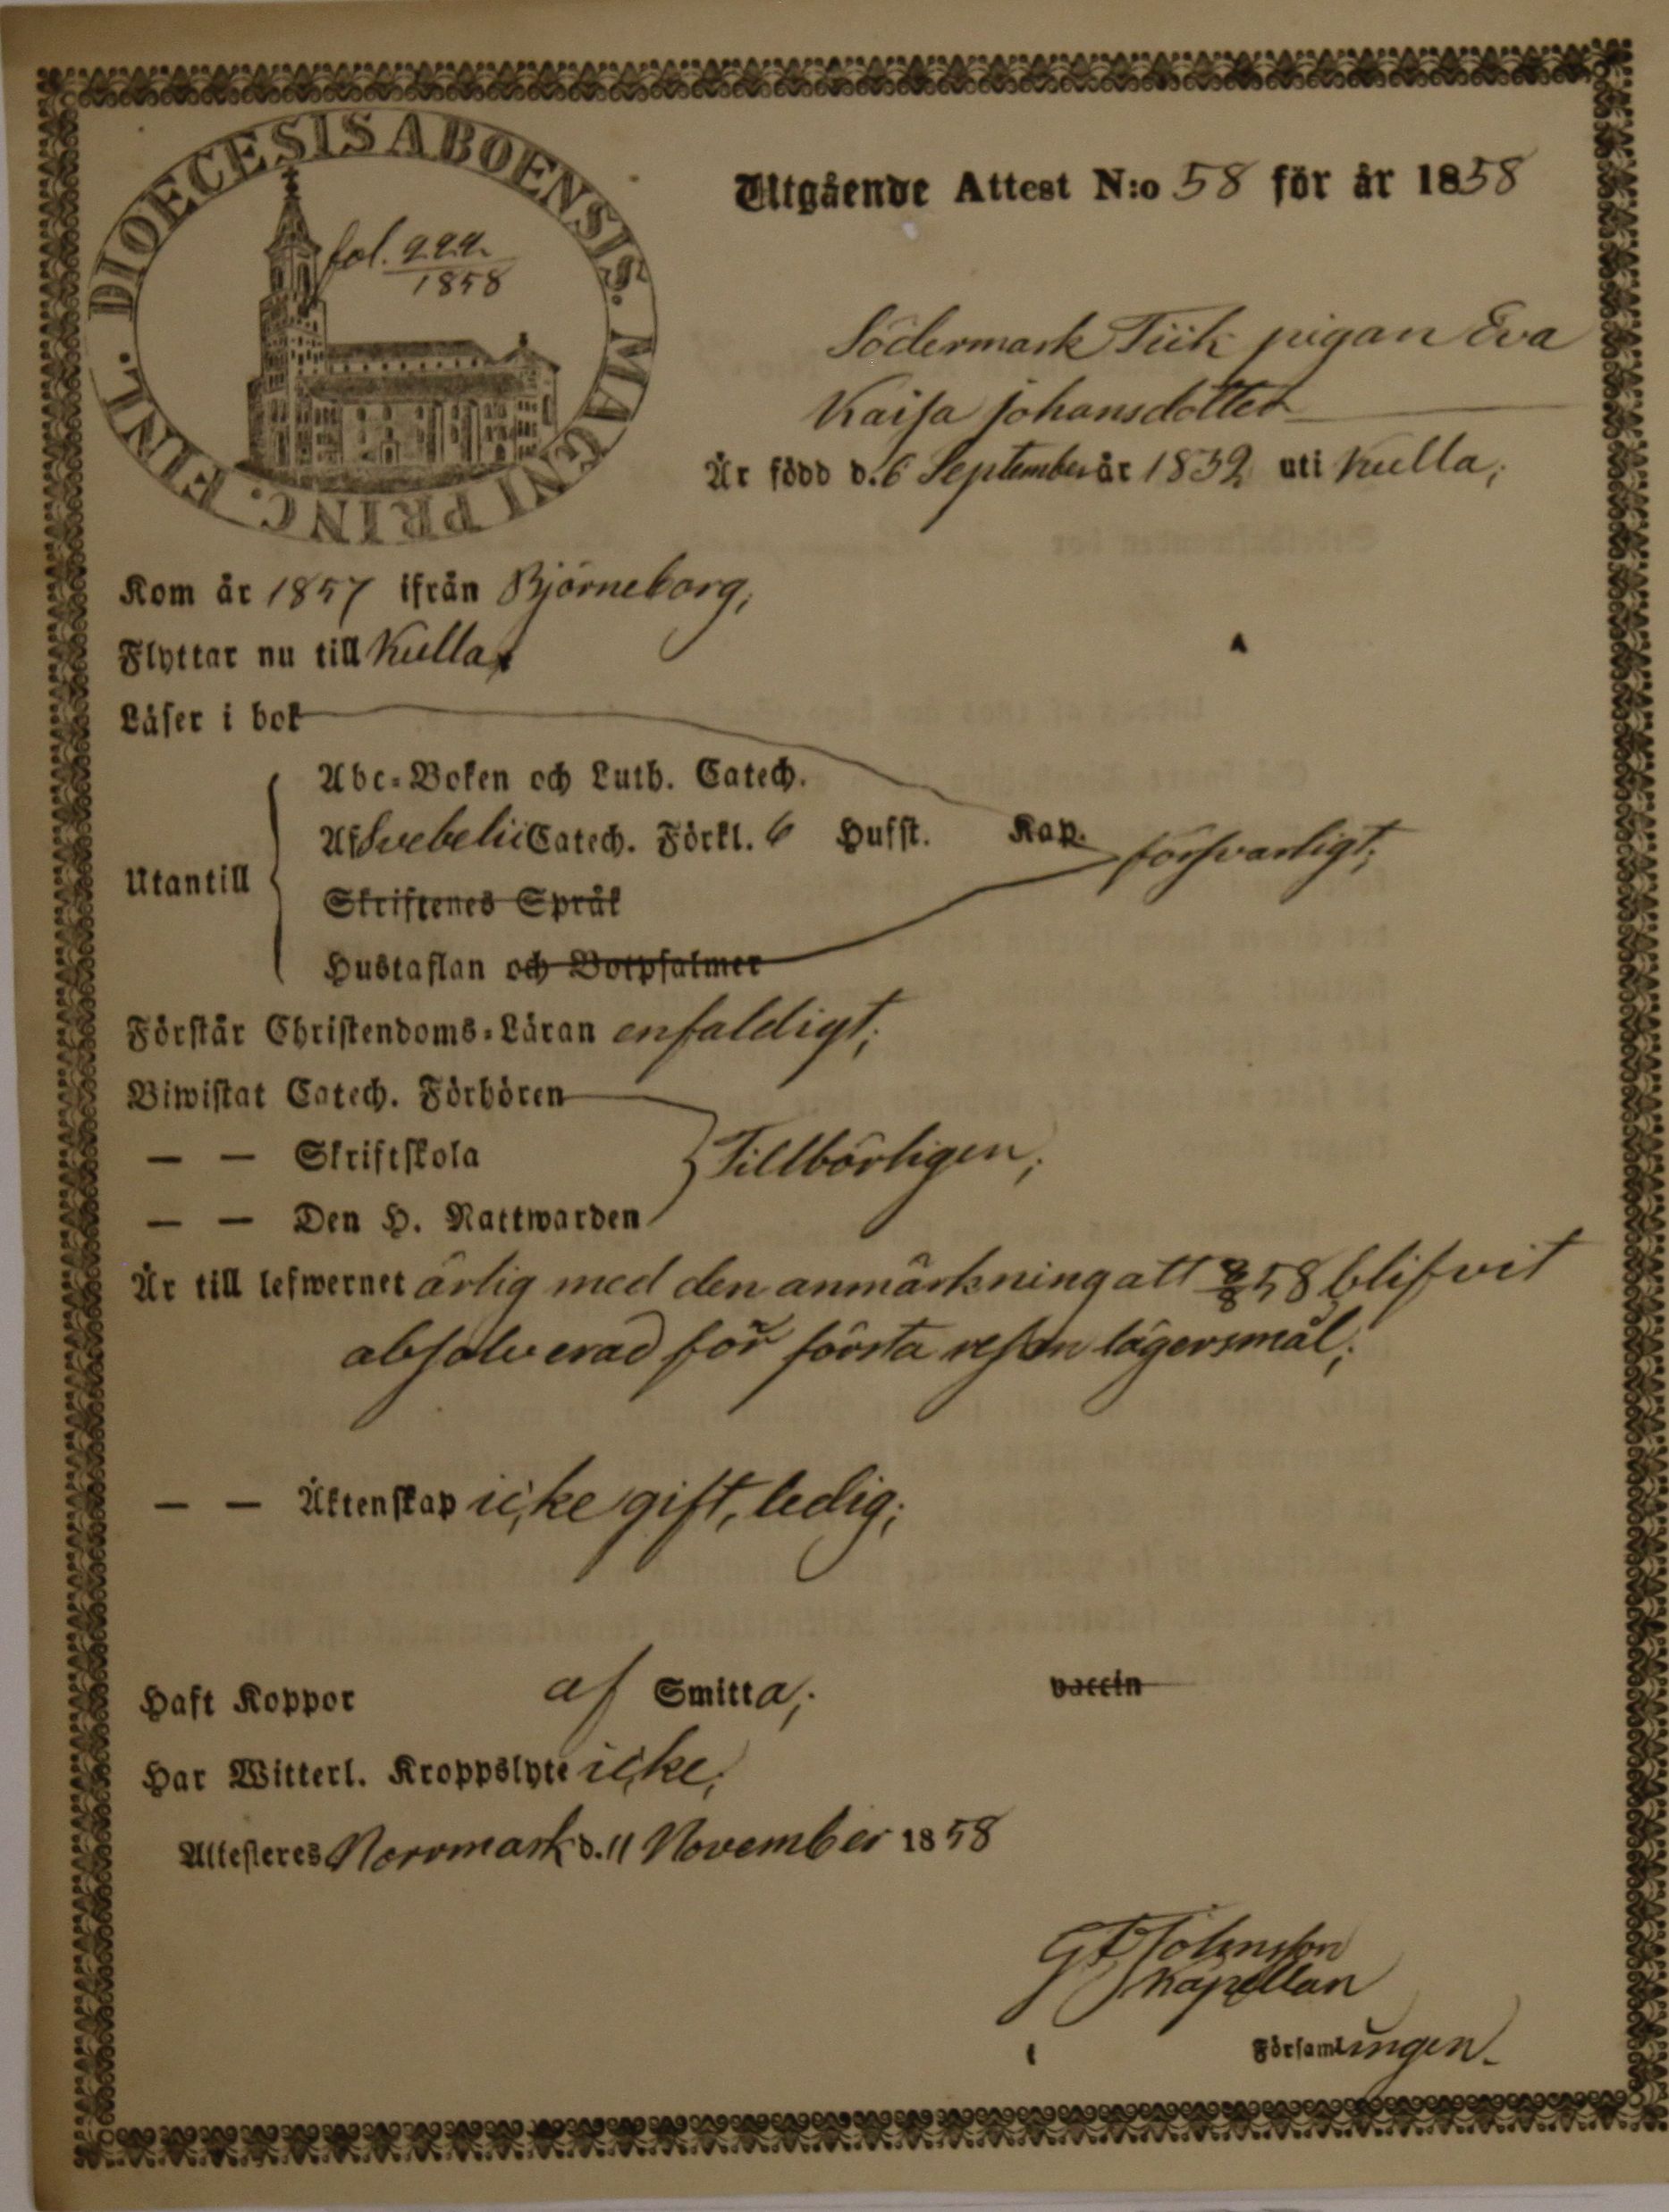 DIOECESIS ABOENSIS. MAGNI PRINC. FINL.
fol. 222
1858
Utgående Attest N:o 58 för år 1858
Södermark Tiik pigan Eva
Kaisa Johansdotter
Är född d. 6 September år 1832 uti Kulla;
Kom år 1857 ifrån Björneborg;
Flyttar nu till Kulla;
Läser i bok
Abc-Boken och Luth. Catech.
Af Svebelii Catech. Förkl. 6 Hufst. Kap. försvarligt;
Utantill
Skriftenes Språk
Hustaflan och Botpsalmer
Förstår Christendoms-Läran enfaldigt;
Biwistat Catech. Förhören
— — Skriftskola Tillbörligen;
— — Den H. Nattwarden
Är till lefwernet ärlig med den anmärkning att 58 blifvit
absolverad för första resan lägersmål;
— — Äktenskap icke gift, ledig;
Haft Koppor af Smitta; vaccin
Har Witterl. Kroppslyte icke;
Attesteres Norrmark d. 11 November 1858
Johnsson
Kapellan
Församlingen.